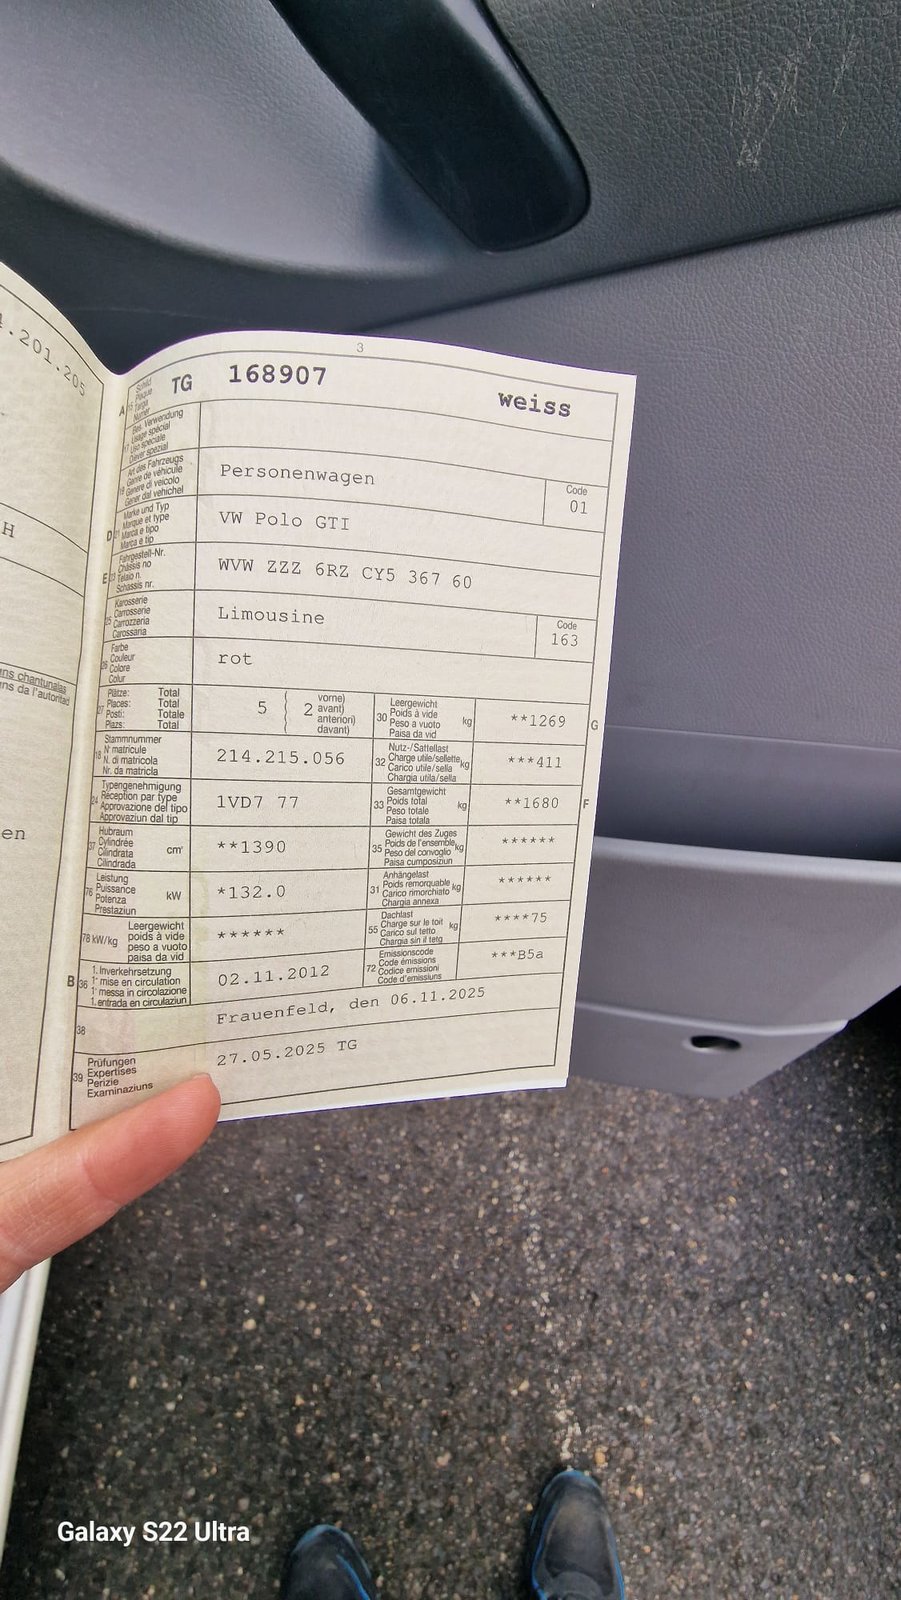 4.201.205
H
ens chantunalas
ns da l'autoritad
en
3
A 15 Schild
Plaque
Targa
Numer
TG 168907 weiss
17 Bes. Verwendung
Usage spécial
Uso speciale
Diever spezial
19 Art des Fahrzeugs
Genre de véhicule
Genere di veicolo
Gener dal vehichel
Personenwagen
Code
01
D 21 Marke und Typ
Marque et type
Marca e tipo
Marca e tip
VW Polo GTI
E 23 Fahrgestell-Nr.
Châssis no
Telaio n.
Schassis nr.
WVW ZZZ 6RZ CY5 367 60
25 Karosserie
Carrosserie
Carrozzeria
Carossaria
Limousine
Code
163
26 Farbe
Couleur
Colore
Colur
rot
27 Plätze: Total
Places: Total
Posti: Totale
Plazs: Total
5 { 2 vorne)
avant)
anteriori)
davant)
30 Leergewicht
Poids à vide
Peso a vuoto
Paisa da vid
kg
**1269
G
18 Stammnummer
N° matricule
N. di matricola
Nr. da matricla
214.215.056
32 Nutz-/Sattellast
Charge utile/sellette
Carico utile/sella
Chargia utila/sella
kg
***411
24 Typengenehmigung
Réception par type
Approvazione del tipo
Approvaziun dal tip
1VD7 77
33 Gesamtgewicht
Poids total
Peso totale
Paisa totala
kg
**1680
F
37 Hubraum
Cylindrée
Cilindrata
Cilindrada
cm³
**1390
35 Gewicht des Zuges
Poids de l'ensemble
Peso del convoglio
Paisa cumposiziun
kg
******
76 Leistung
Puissance
Potenza
Prestaziun
kW
*132.0
31 Anhängelast
Poids remorquable
Carico rimorchiato
Chargia annexa
kg
******
78 kW/kg
Leergewicht
poids à vide
peso a vuoto
paisa da vid
******
55 Dachlast
Charge sur le toit
Carico sul tetto
Chargia sin il tetg
kg
****75
B 36 1. Inverkehrsetzung
1e mise en circulation
1a messa in circolazione
1. entrada en circulaziun
02.11.2012
72 Emissionscode
Code émissions
Codice emissioni
Code d'emissiuns
***B5a
38
Frauenfeld, den 06.11.2025
39 Prüfungen
Expertises
Perizie
Examinaziuns
27.05.2025 TG
Galaxy S22 Ultra